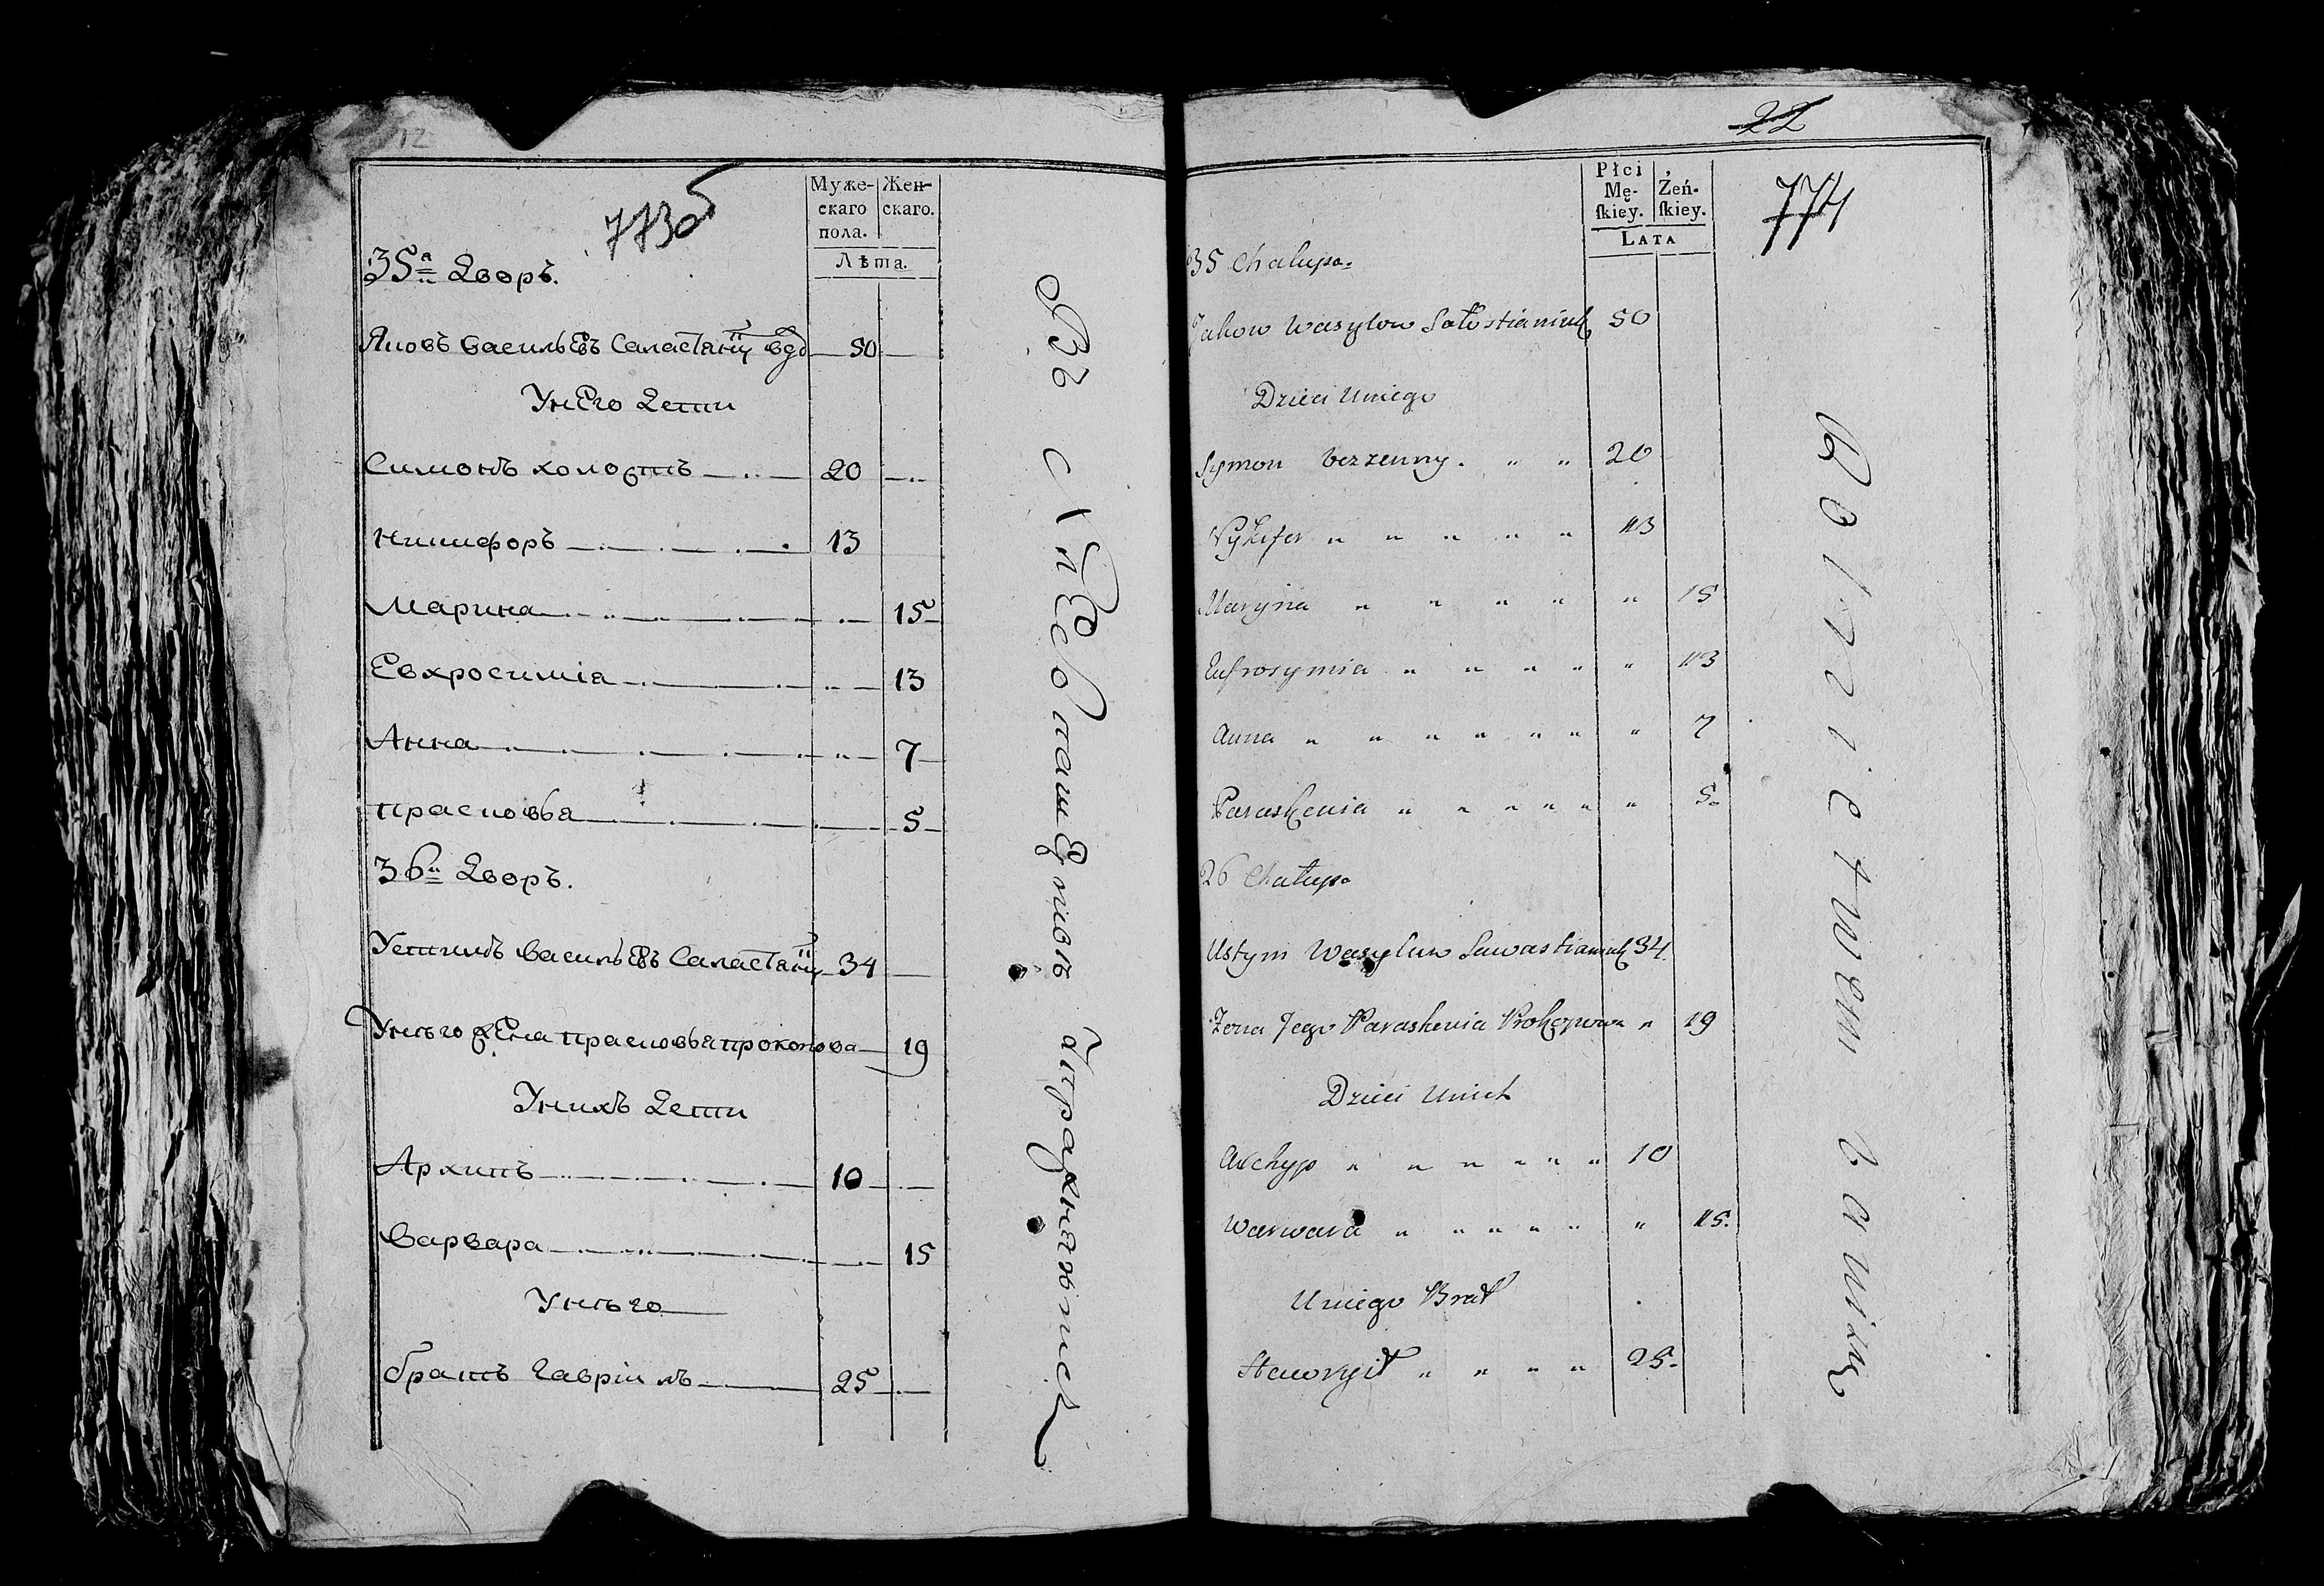 12
773об
Муже-
скаго
пола.
Жен-
скаго.
Лѣта.
35а Дворъ.
Яковъ васильевъ Саластянц вдо 50
Унего Дети
Симонъ холостъ 20
Никифоръ 13
Марина 15
Евхросимія 13
Анна 7
прасковья 5
36й Дворъ.
Устимъ васильевъ Саластянц 34
Унѣго жена прасковья прокопова 19
Унихъ Дети
Архипъ 10
варвара 15
Унѣго
братъ гавріилъ 25
Въ
22
774
Płci
Mę-
ſkiey.
Żeń-
ſkiey.
Lata
35 Chalupa
Jakow Wasylow Sołostianiuk 50
Dzieci Uniego
Symon bezzenny. " " 20
Nykifor " " " " " 13
Maryna " " " " " 15
Eufrosymia " " " " " 13
Anna " " " " " " " 7
Paraskewia " " " " " " 5
26 Chałupa
Ustym Wasylow Sawastianiuk 34
Zona Jego Paraskewia Prokopowa " 19
Dzieci Unich
Archyp " " " " " " 10
Warwara " " " " " " 15.
Uniego Brat
Hawryił " " " " 25.